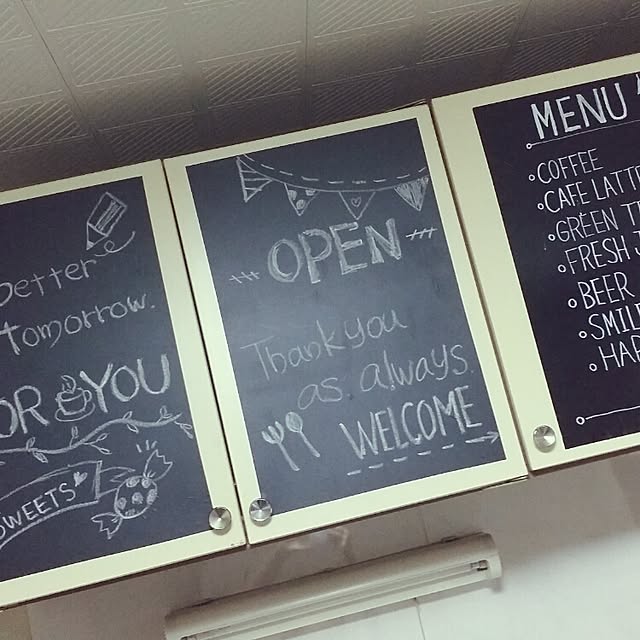 better
tomorrow.
FOR YOU
SWEETS
OPEN
Thank you
as always.
WELCOME
MENU
COFFEE
CAFE LATTE
GREEN
FRESH
BEER